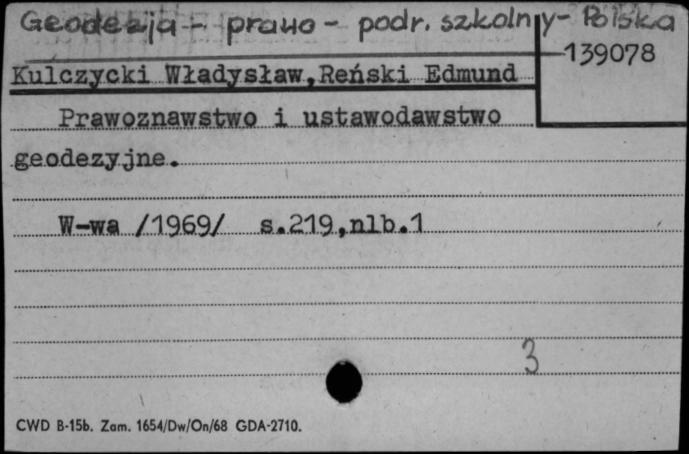 Geodezja - prawo - podr. szkolny - Polska
139078
Kulczycki Władysław,Reński Edmund
Prawoznawstwo i ustawodawstwo
geodezyjne.
W-wa /1969/ s.219,nlb.1
3
CWD B-15b. Zam. 1654/Dw/On/68 GDA-2710.